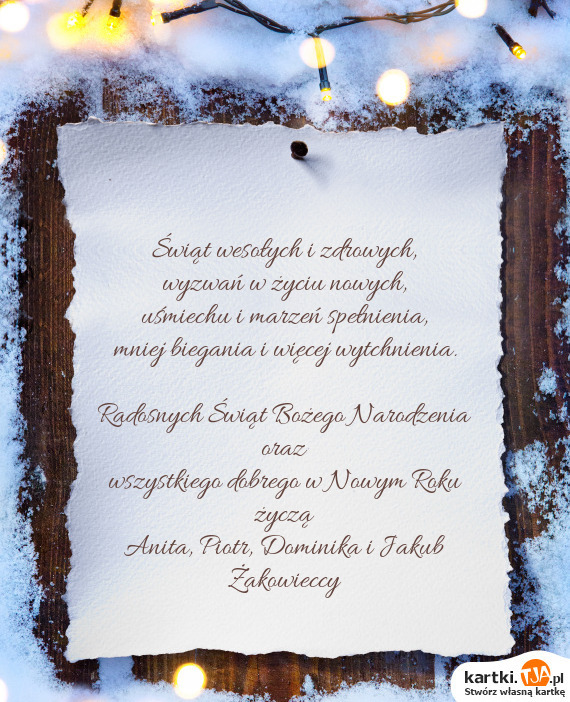 Świąt wesołych i zdrowych,
wyzwań w życiu nowych,
uśmiechu i marzeń spełnienia,
mniej biegania i więcej wytchnienia.
Radosnych Świąt Bożego Narodzenia
oraz
wszystkiego dobrego w Nowym Roku
życzą
Anita, Piotr, Dominika i Jakub
Żakowieccy
kartki.TJA.pl
Stwórz własną kartkę